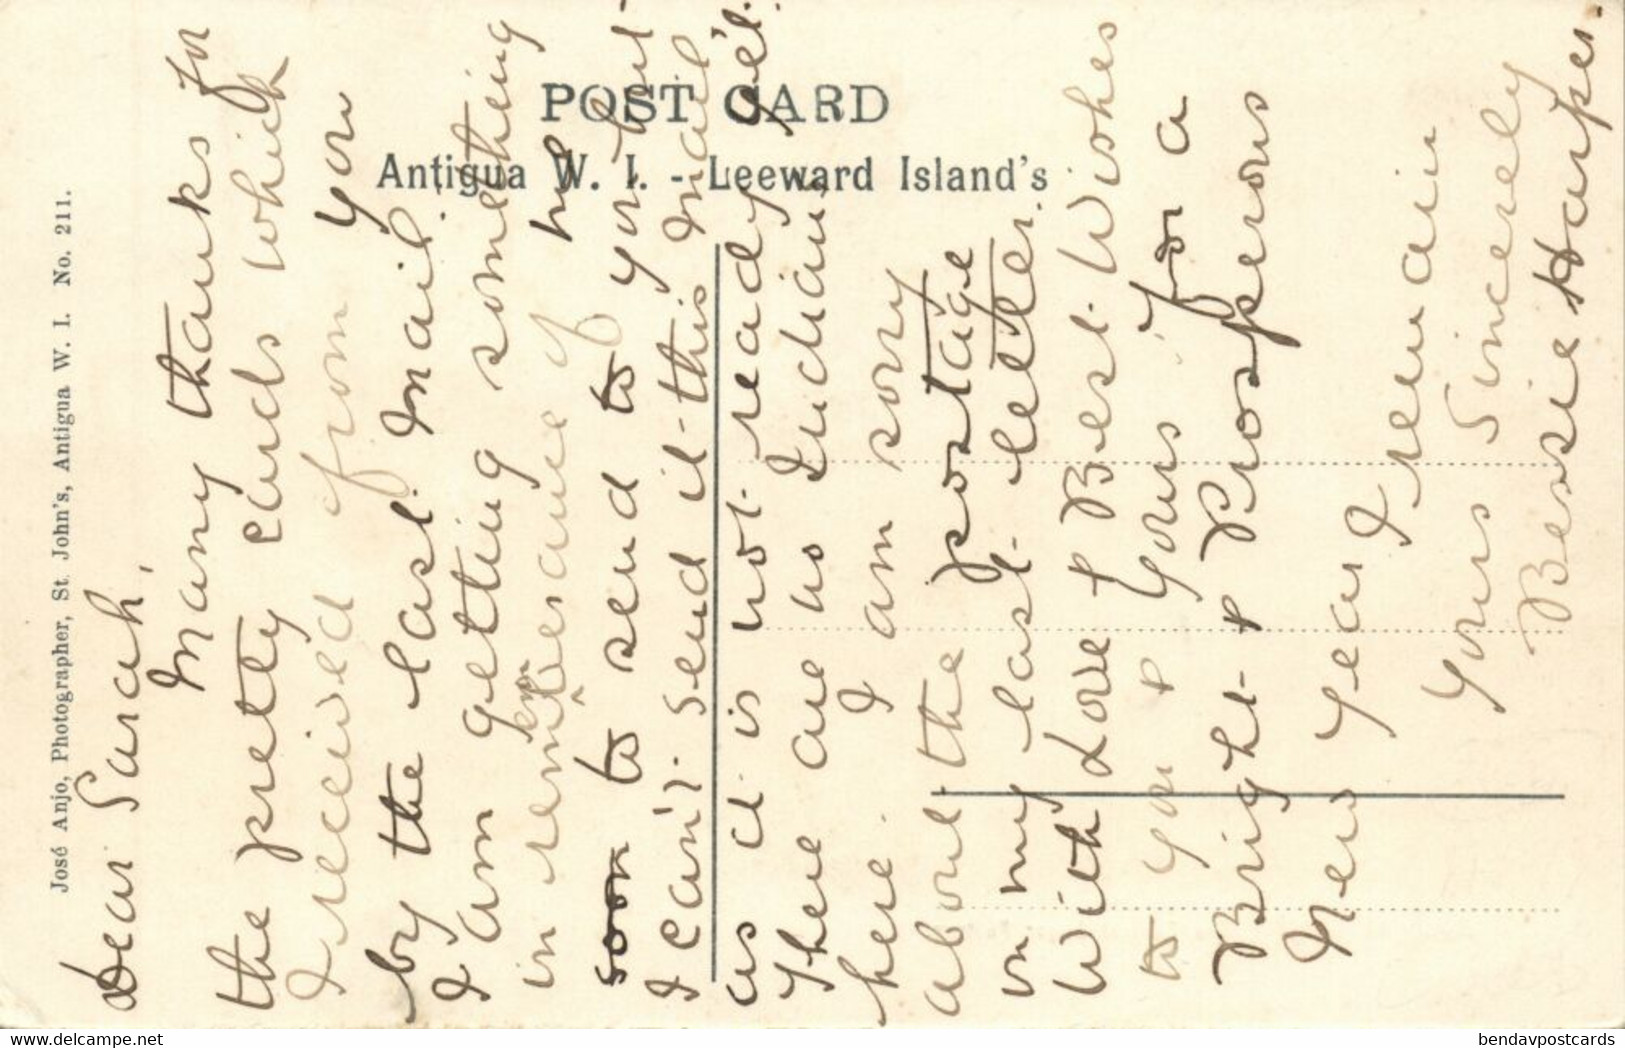 POST CARD
Antigua W. I. - Leeward Island's
José Anjo, Photographer, St. John's, Antigua W. I. No. 211.
Dear Sarah,
Many thanks for
the pretty cards which
I received from you
by the last mail
I am getting something
in remberance of me
em
soon to send to you but
I can't send it this mail
as it is not ready yet.
There are no Indians
here. I am sorry
about the postage
on my last letter.
With Love & Best Wishes
to you & Yours for a
Bright & Prosperous
New Year I remain
Yours Sincerely
Bessie Harper.
www.delcampe.net
bendavpostcards